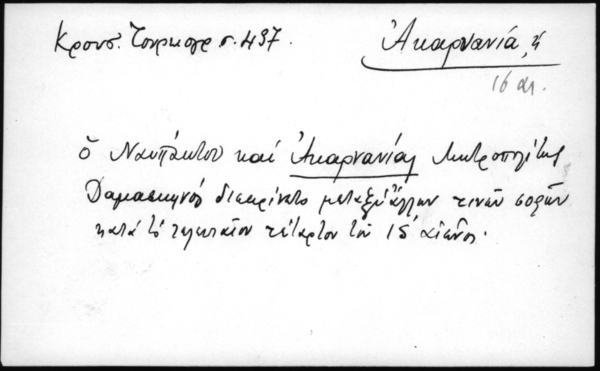 Κρουσ. Τουρκογρ σ. 437.
Ἀκαρνανία, ἡ
16 αι.
ὁ Ναυπάκτου καί Ἀκαρνανίας Μητροπολίτης
Δαμασκηνός διεκρίνετο μεταξύ ἄλλων τινῶν σοφῶν
κατά τό τελευταῖον τέταρτον τοῦ ΙΣ΄ αἰῶνος.